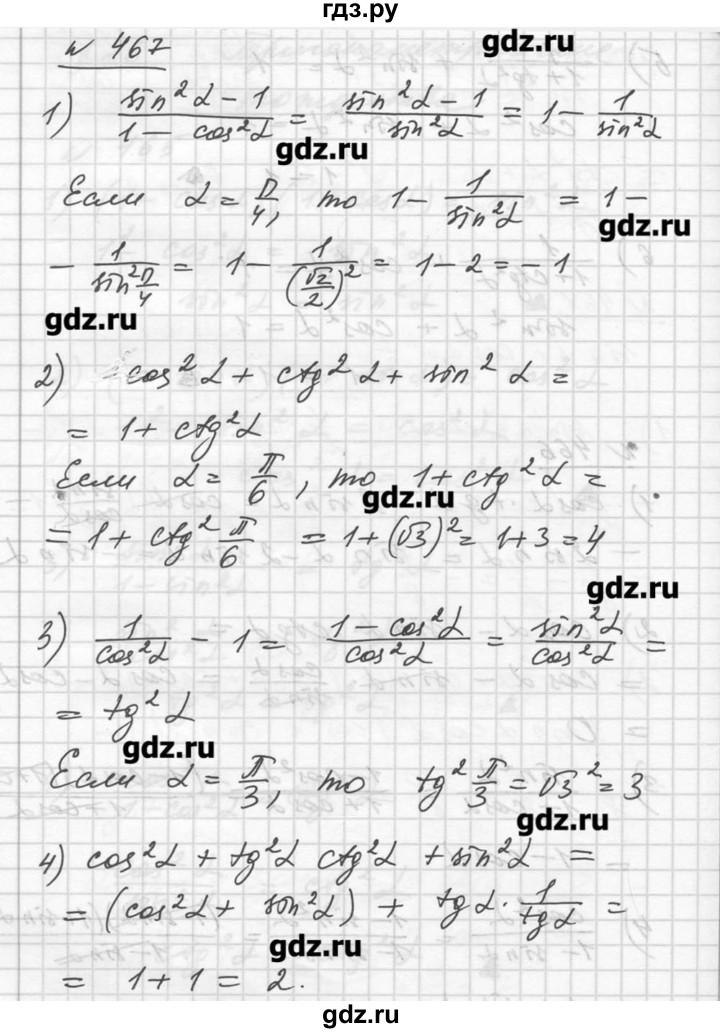 гдз.ру
gdz.ru
№ 467
1) (sin²α − 1)/(1 − cos²α) = (sin²α − 1)/(sin²α) = 1 − 1/(sin²α)
gdz.ru
Если α = π/4, то 1 − 1/(sin²α) = 1 −
gdz.ru
− 1/(sin² π/4) = 1 − 1/(√2/2)² = 1 − 2 = − 1
gdz.ru
2) cos²α + ctg²α + sin²α =
= 1 + ctg²α
Если α = π/6, то 1 + ctg²α =
gdz.ru
= 1 + ctg² π/6 = 1 + (√3)² = 1 + 3 = 4
gdz.ru
3) 1/(cos²α) − 1 = (1 − cos²α)/(cos²α) = (sin²α)/(cos²α) =
= tg²α
gdz.ru
Если α = π/3, то tg² π/3 = √3² = 3
gdz.ru
4) cos²α + tg²α ctg²α + sin²α =
= (cos²α + sin²α) + tgα · 1/(tgα) =
gdz.ru
= 1 + 1 = 2.
гдз.ру